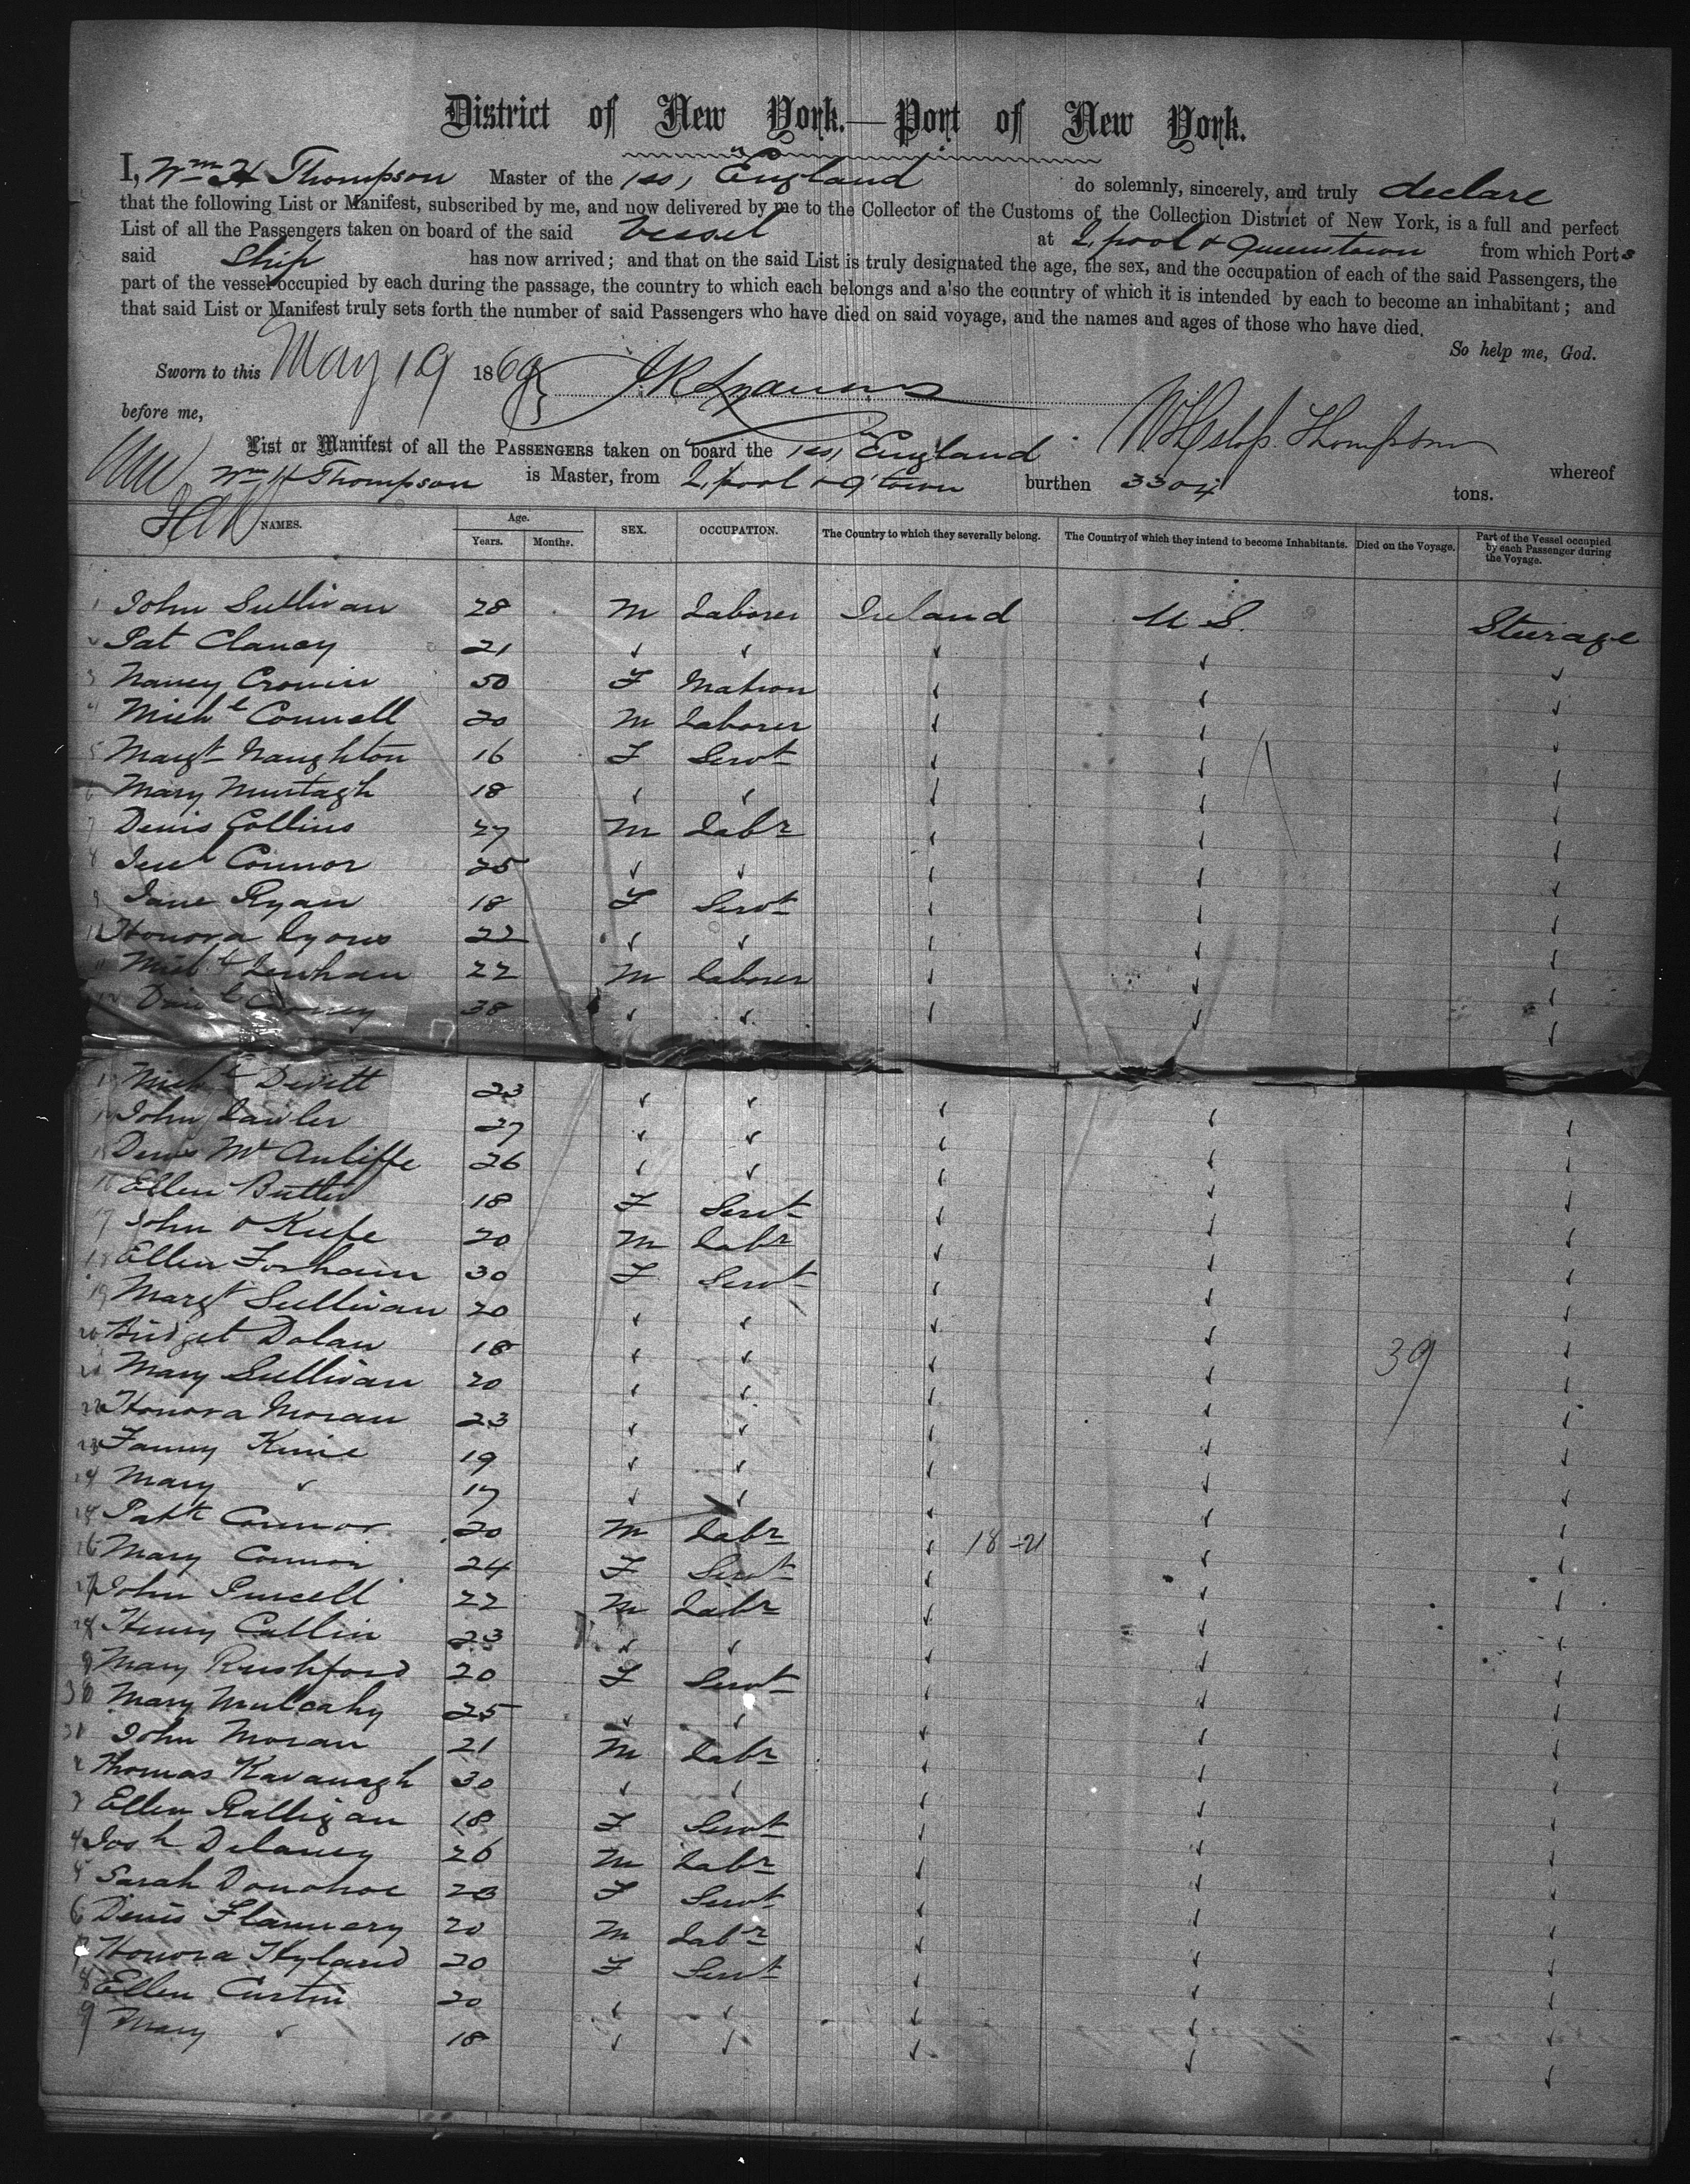 District of New York.—Port of New York.
I, Wm H Thompson Master of the ss, England do solemnly, sincerely, and truly declare
that the following List or Manifest, subscribed by me, and now delivered by me to the Collector of the Customs of the Collection District of New York, is a full and perfect
List of all the Passengers taken on board of the said Vessel at L'pool & Queenstown from which Ports
said Ship has now arrived; and that on the said List is truly designated the age, the sex, and the occupation of each of the said Passengers, the
part of the vessel occupied by each during the passage, the country to which each belongs and also the country of which it is intended by each to become an inhabitant; and
that said List or Manifest truly sets forth the number of said Passengers who have died on said voyage, and the names and ages of those who have died.
So help me, God.
Sworn to this May 19 1869
before me,
W Heslop Thompson
List or Manifest of all the PASSENGERS taken on board the ss, England whereof
Wm H Thompson is Master, from L'pool & Q'town burthen 3304 tons.
NAMES. Age. Years. Months. SEX. OCCUPATION. The Country to which they severally belong. The Country of which they intend to become Inhabitants. Died on the Voyage. Part of the Vessel occupied by each Passenger during the Voyage.
1 John Sullivan 28 M Laborer Ireland U S. Steerage
2 Pat Clancy 21 ✓ ✓ ✓ ✓ ✓
3 Nancy Cronin 50 F Matron ✓ ✓ ✓
4 Michl Connell 20 M Laborer ✓ ✓ ✓
5 Margt Naughton 16 F Servt ✓ ✓ ✓
6 Mary Murtagh 18 ✓ ✓ ✓ ✓ ✓
7 Denis Collins 27 M Labr ✓ ✓ ✓
8 Connor 25 ✓ ✓ ✓ ✓ ✓
9 Jane Ryan 18 F Servt ✓ ✓ ✓
10 Honora Lyons 22 ✓ ✓ ✓ ✓ ✓
11 Michl Lenihan 22 M Laborer ✓ ✓ ✓
12 Danl 38 ✓ ✓ ✓ ✓ ✓
13 Michl Devitt 23 ✓ ✓ ✓ ✓ ✓
14 John Lawler 27 ✓ ✓ ✓ ✓ ✓
15 Denis McAuliffe 26 ✓ ✓ ✓ ✓ ✓
16 Ellen Butler 18 F Servt ✓ ✓ ✓
17 John O'Keefe 20 M Labr ✓ ✓ ✓
18 Ellen Forhan 30 F Servt ✓ ✓ ✓
19 Margt Sullivan 20 ✓ ✓ ✓ ✓ ✓
20 Bridget Dolan 18 ✓ ✓ ✓ ✓ 39 ✓
21 Mary Sullivan 20 ✓ ✓ ✓ ✓ ✓
22 Honora Moran 23 ✓ ✓ ✓ ✓ ✓
23 Fanny 19 ✓ ✓ ✓ ✓ ✓
24 Mary ✓ 17 ✓ ✓ ✓ ✓ ✓
25 Patk Connor 20 M Labr ✓ 18-21 ✓ ✓
26 Mary Connor 24 F Servt ✓ ✓ ✓
27 John Purcell 22 M Labr ✓ ✓ ✓
28 Henry Callin 23 ✓ ✓ ✓ ✓ ✓
9 Mary Rushford 20 F Servt ✓ ✓ ✓
30 Mary Mulcahy 25 ✓ ✓ ✓ ✓ ✓
31 John Moran 21 M Labr ✓ ✓ ✓
2 Thomas Kavanagh 30 ✓ ✓ ✓ ✓ ✓
3 Ellen Ralligan 18 F Servt ✓ ✓ ✓
4 Josh Delaney 26 M Labr ✓ ✓ ✓
5 Sarah Donohoe 23 F Servt ✓ ✓ ✓
6 Denis Flannery 20 M Labr ✓ ✓ ✓
7 Honora Hyland 20 F Servt ✓ ✓ ✓
8 Ellen Curtin 20 ✓ ✓ ✓ ✓ ✓
9 Mary ✓ 18 ✓ ✓ ✓ ✓ ✓